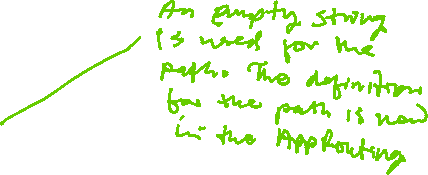 An empty string
is used for the
path. The definition
for the path is now
in the AppRouting